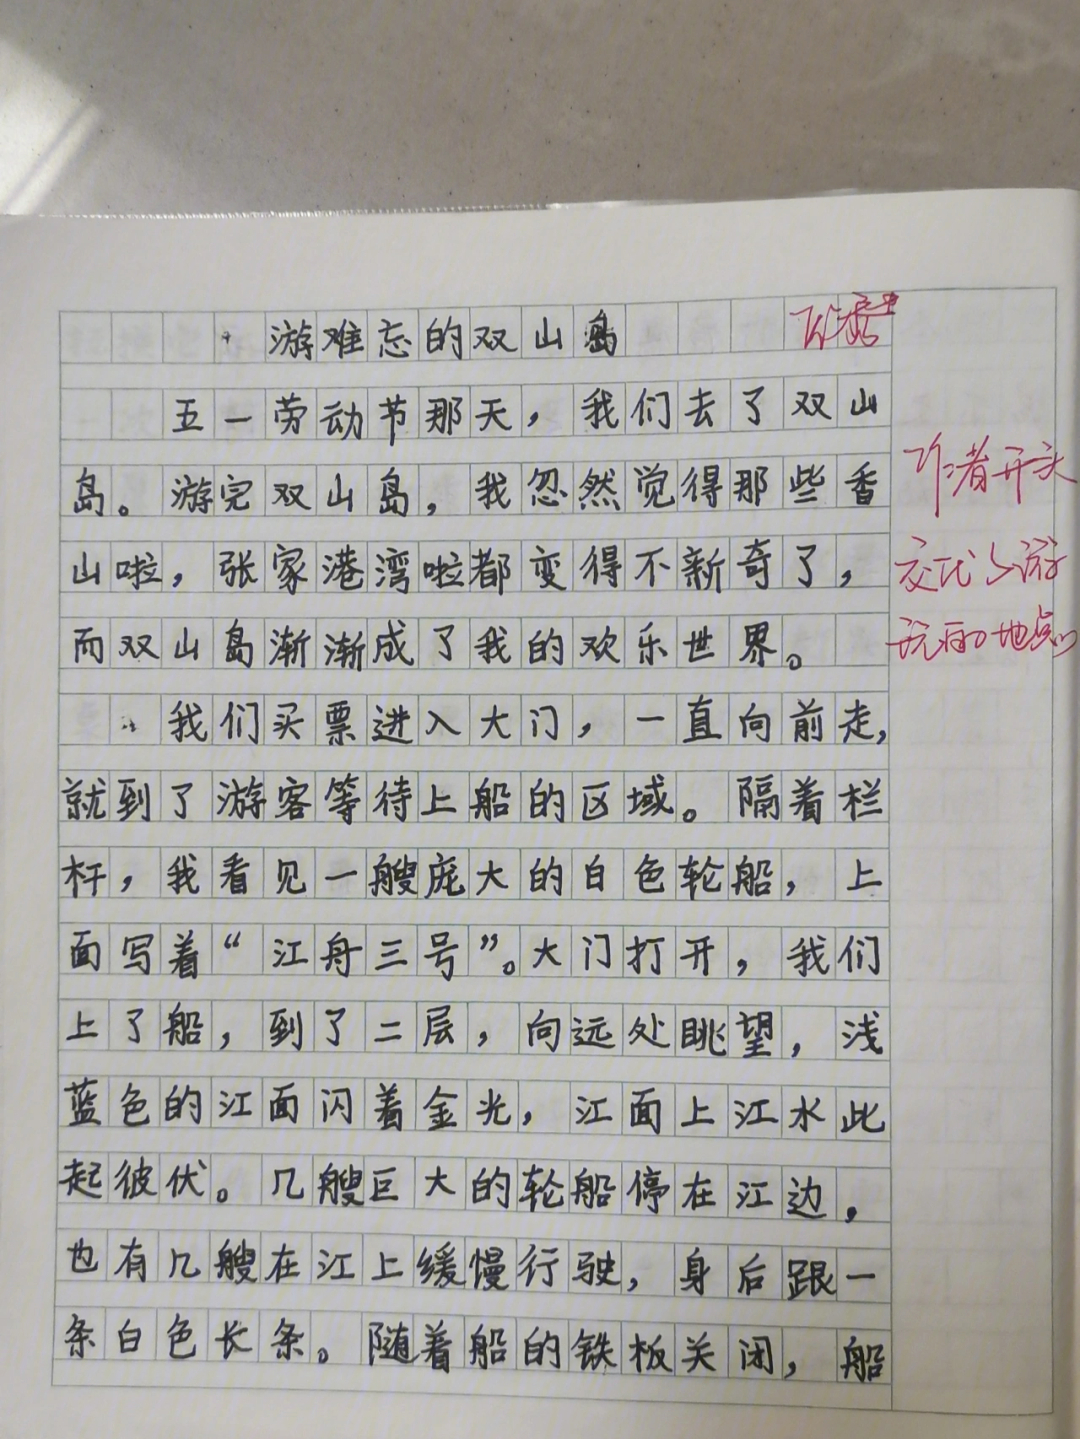 游难忘的双山岛
五一劳动节那天，我们去了双山
岛。游完双山岛，我忽然觉得那些香
山啦，张家港湾啦都变得不新奇了，
而双山岛渐渐成了我的欢乐世界。
我们买票进入大门，一直向前走，
就到了游客等待上船的区域。隔着栏
杆，我看见一艘庞大的白色轮船，上
面写着“江舟三号”。大门打开，我们
上了船，到了二层，向远处眺望，浅
蓝色的江面闪着金光，江面上江水此
起彼伏。几艘巨大的轮船停在江边，
也有几艘在江上缓慢行驶，身后跟一
条白色长条。随着船的铁板关闭，船
作者开头
交代了游
玩的地点